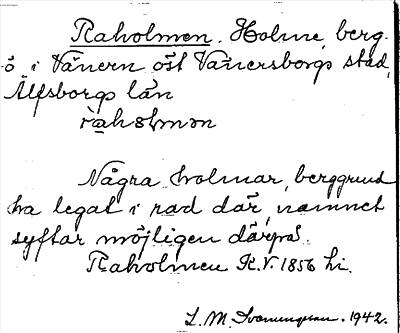 Raholmen. Holme, berg-
ö i Vänern öst Vänersborgs stad,
Älfsborgs län
ràholmən
Några holmar, berggrund
ha legat i rad där, namnet
syftar möjligen därpå.
Raholmen K.V. 1856 hi.
L. M. Svenungsson. 1942.